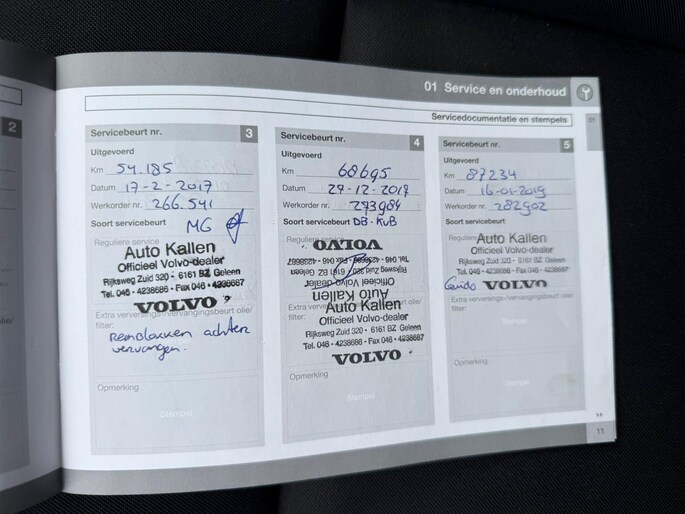 01 Service en onderhoud
Servicedocumentatie en stempels
2
Servicebeurt nr. 3
Uitgevoerd
Km 54.185
Datum 17-2-2017
Werkorder nr. 266.541
Soort servicebeurt MG
Reguliere service
Auto Kallen
Officieel Volvo-dealer
Rijksweg Zuid 320 - 6161 BZ Geleen
Tel. 046 - 4238686 - Fax 046 - 4238687
VOLVO
Extra verversings-/vervangingsbeurt olie/
filter:
Remblokken achter
vervangen.
Opmerking
Stempel
Servicebeurt nr. 4
Uitgevoerd
Km 68695
Datum 29-12-2017
Werkorder nr. 273984
Soort servicebeurt DB-KvB
Reguliere
VOLVO
Tel. 046 - 4238686 - Fax 046 - 4238687
Rijksweg Zuid 320 - 6161 BZ Geleen
Officieel Volvo-dealer
Auto Kallen
Auto Kallen
Officieel Volvo-dealer
Rijksweg Zuid 320 - 6161 BZ Geleen
Tel. 046 - 4238686 - Fax 046 - 4238687
VOLVO
Opmerking
Stempel
Servicebeurt nr. 5
Uitgevoerd
Km 87234
Datum 16-01-2019
Werkorder nr. 282902
Soort servicebeurt
Reguliere service
Auto Kallen
Officieel Volvo-dealer
Rijksweg Zuid 320 - 6161 BZ Geleen
Tel. 046 - 4238686 - Fax 046 - 4238687
Guido VOLVO
Extra verversings-/vervangingsbeurt olie/
filter:
Stempel
Opmerking
Stempel
11